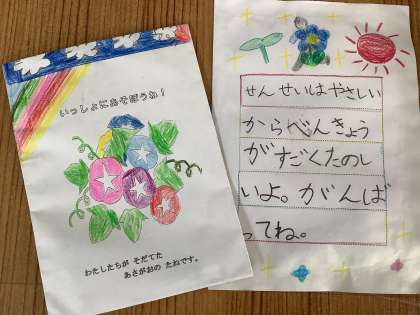 いっしょにあそぼうね！
わたしたちが そだてた
あさがおの たねです。
せんせいはやさしい
からべんきょう
がすごくたのし
いよ。がんば
ってね。